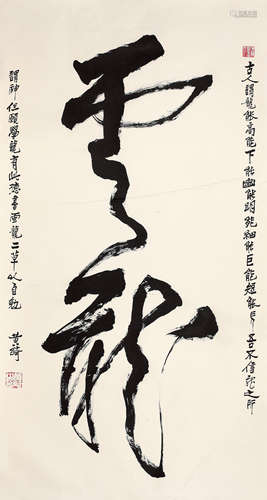 古人謂龍能高能下能幽能明能細能巨能短能長吾不信神之所
雲龍
謂神但願學龍有此德書雲龍二草以自勉
黃綺